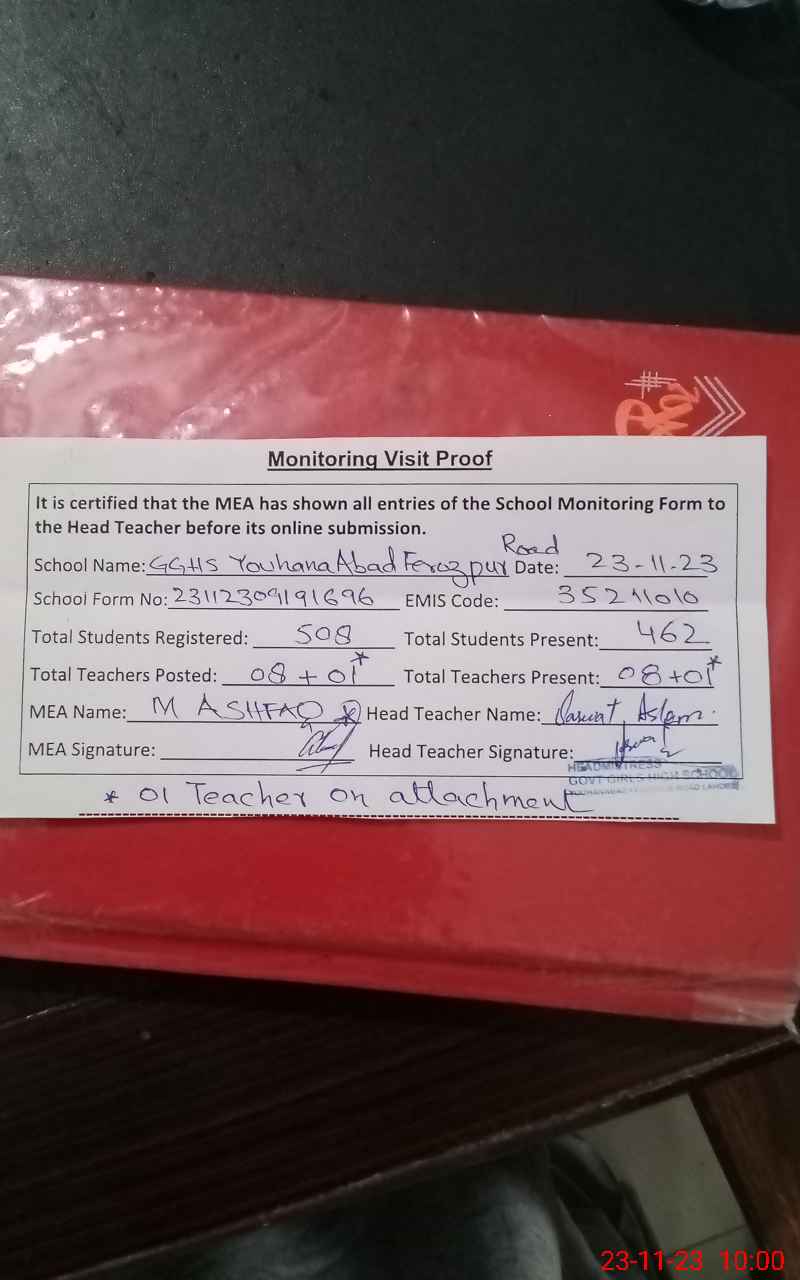 Monitoring Visit Proof
It is certified that the MEA has shown all entries of the School Monitoring Form to
the Head Teacher before its online submission.
School Name: GGHS Youhana Abad Ferozpur Road Date: 23-11-23
School Form No: 23112309191696 EMIS Code: 35211010
Total Students Registered: 508 Total Students Present: 462
Total Teachers Posted: 08 + 01* Total Teachers Present: 08 + 01*
MEA Name: M ASHFAQ Head Teacher Name: Aslam.
MEA Signature: Head Teacher Signature:
HEADMISTRESS
GOVT GIRLS HIGH SCHOOL
ROAD LAHORE
* 01 Teacher on attachment
23-11-23 10:00